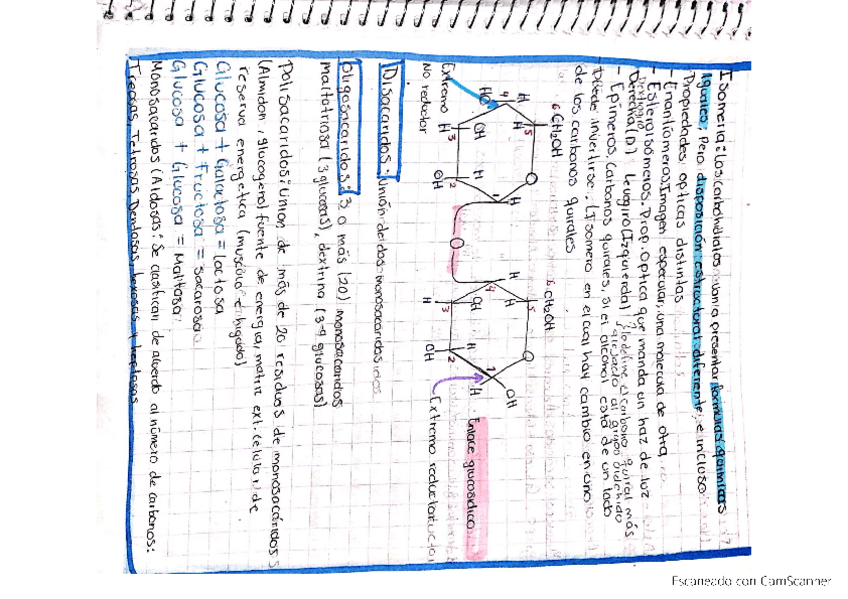 Isomeria: los carbohidratos van a presentar formulas quimicas
iguales, Pero disposición estructural diferente, e incluso
Propiedades opticas distintas
-Enantiómeros: Imagen especular, una molecula de otra
-Esteroisómeros: Prop. optica que manda un haz de luz
Derecha (D) levugiro (Izquierda) lo define el carbono quiral más
alejado al grupo aldehido
-Epimeros (carbonos quirales, si el alcohol está de un lado
Puede invertirse. (Isomero en el cual hay cambio en uno
de los carbonos quirales
6 CH2OH
6 CH2OH
H
5
O
H
4
HO
H
OH
3
H
H
2
OH
1
H
O
H
5
O
H
4
H
OH
3
H
H
2
OH
1
OH
H
Extremo
No reductor
Enlace glucosidico
Extremo reductor
Disacaridos: Unión de dos monosacaridos
Oligosacaridos: 3 o más (20) monosacaridos
maltotriosa (3 glucosas), dextrina (3-9 glucosas)
Polisacaridos: Union de más de 20 residuos de monosacáridos
(Almidon, glucogeno) fuente de energia, matriz ext. celular, de
reserva energetica (musculo e higado)
Glucosa + Galactosa = lactosa
Glucosa + fructosa = sacarosa
Glucosa + Glucosa = Maltosa
Monosacaridos (Aldosas: Se clasifican de acuerdo al número de carbonos:
Triosas, Tetrosas, Pentosas, hexosas y heptosas
Escaneado con CamScanner